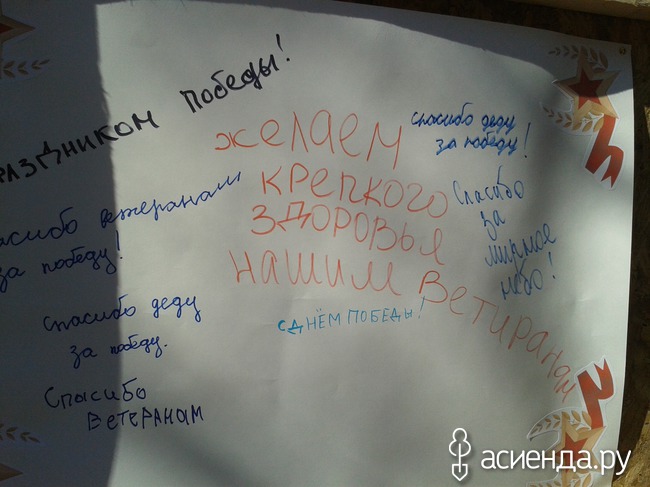 РАЗДНИКОМ ПОБЕДЫ!
желаем
крепкого
здоровья
нашим ветиранам
спасибо деду
за победу!
Спасибо
за
мирное
небо!
асибо ветеранам
за победу!
спасибо деду
за победу.
Спасибо
Ветеранам
С ДНЁМ ПОБЕДЫ!
асиенда.ру